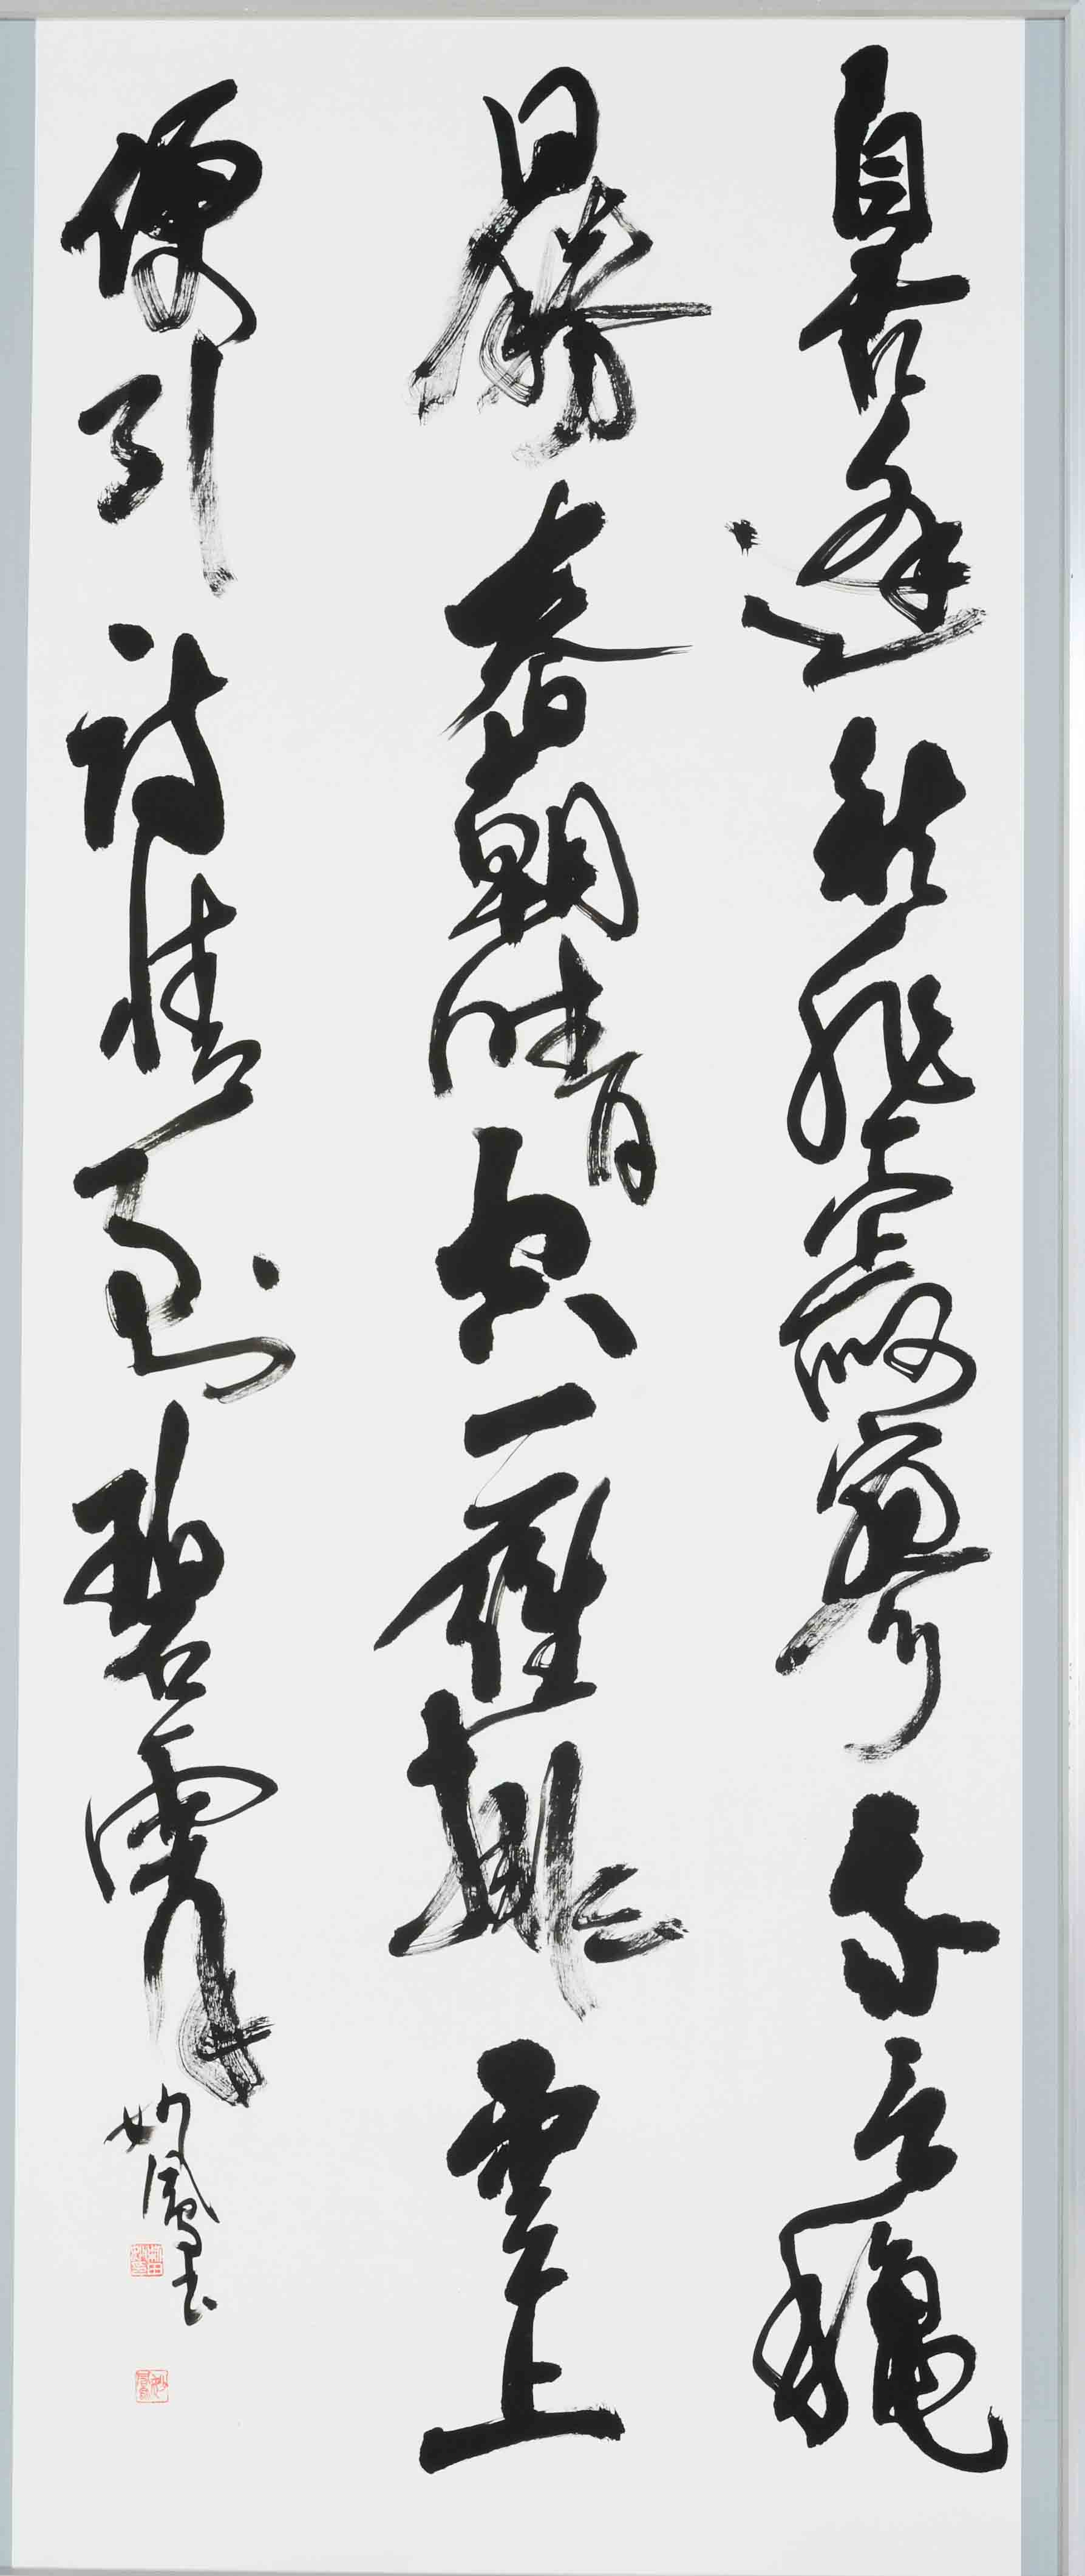 自古逢秋悲寂寥我言穐
日勝春朝晴空一鶴排雲上
便引詩情到碧霄
鳳書